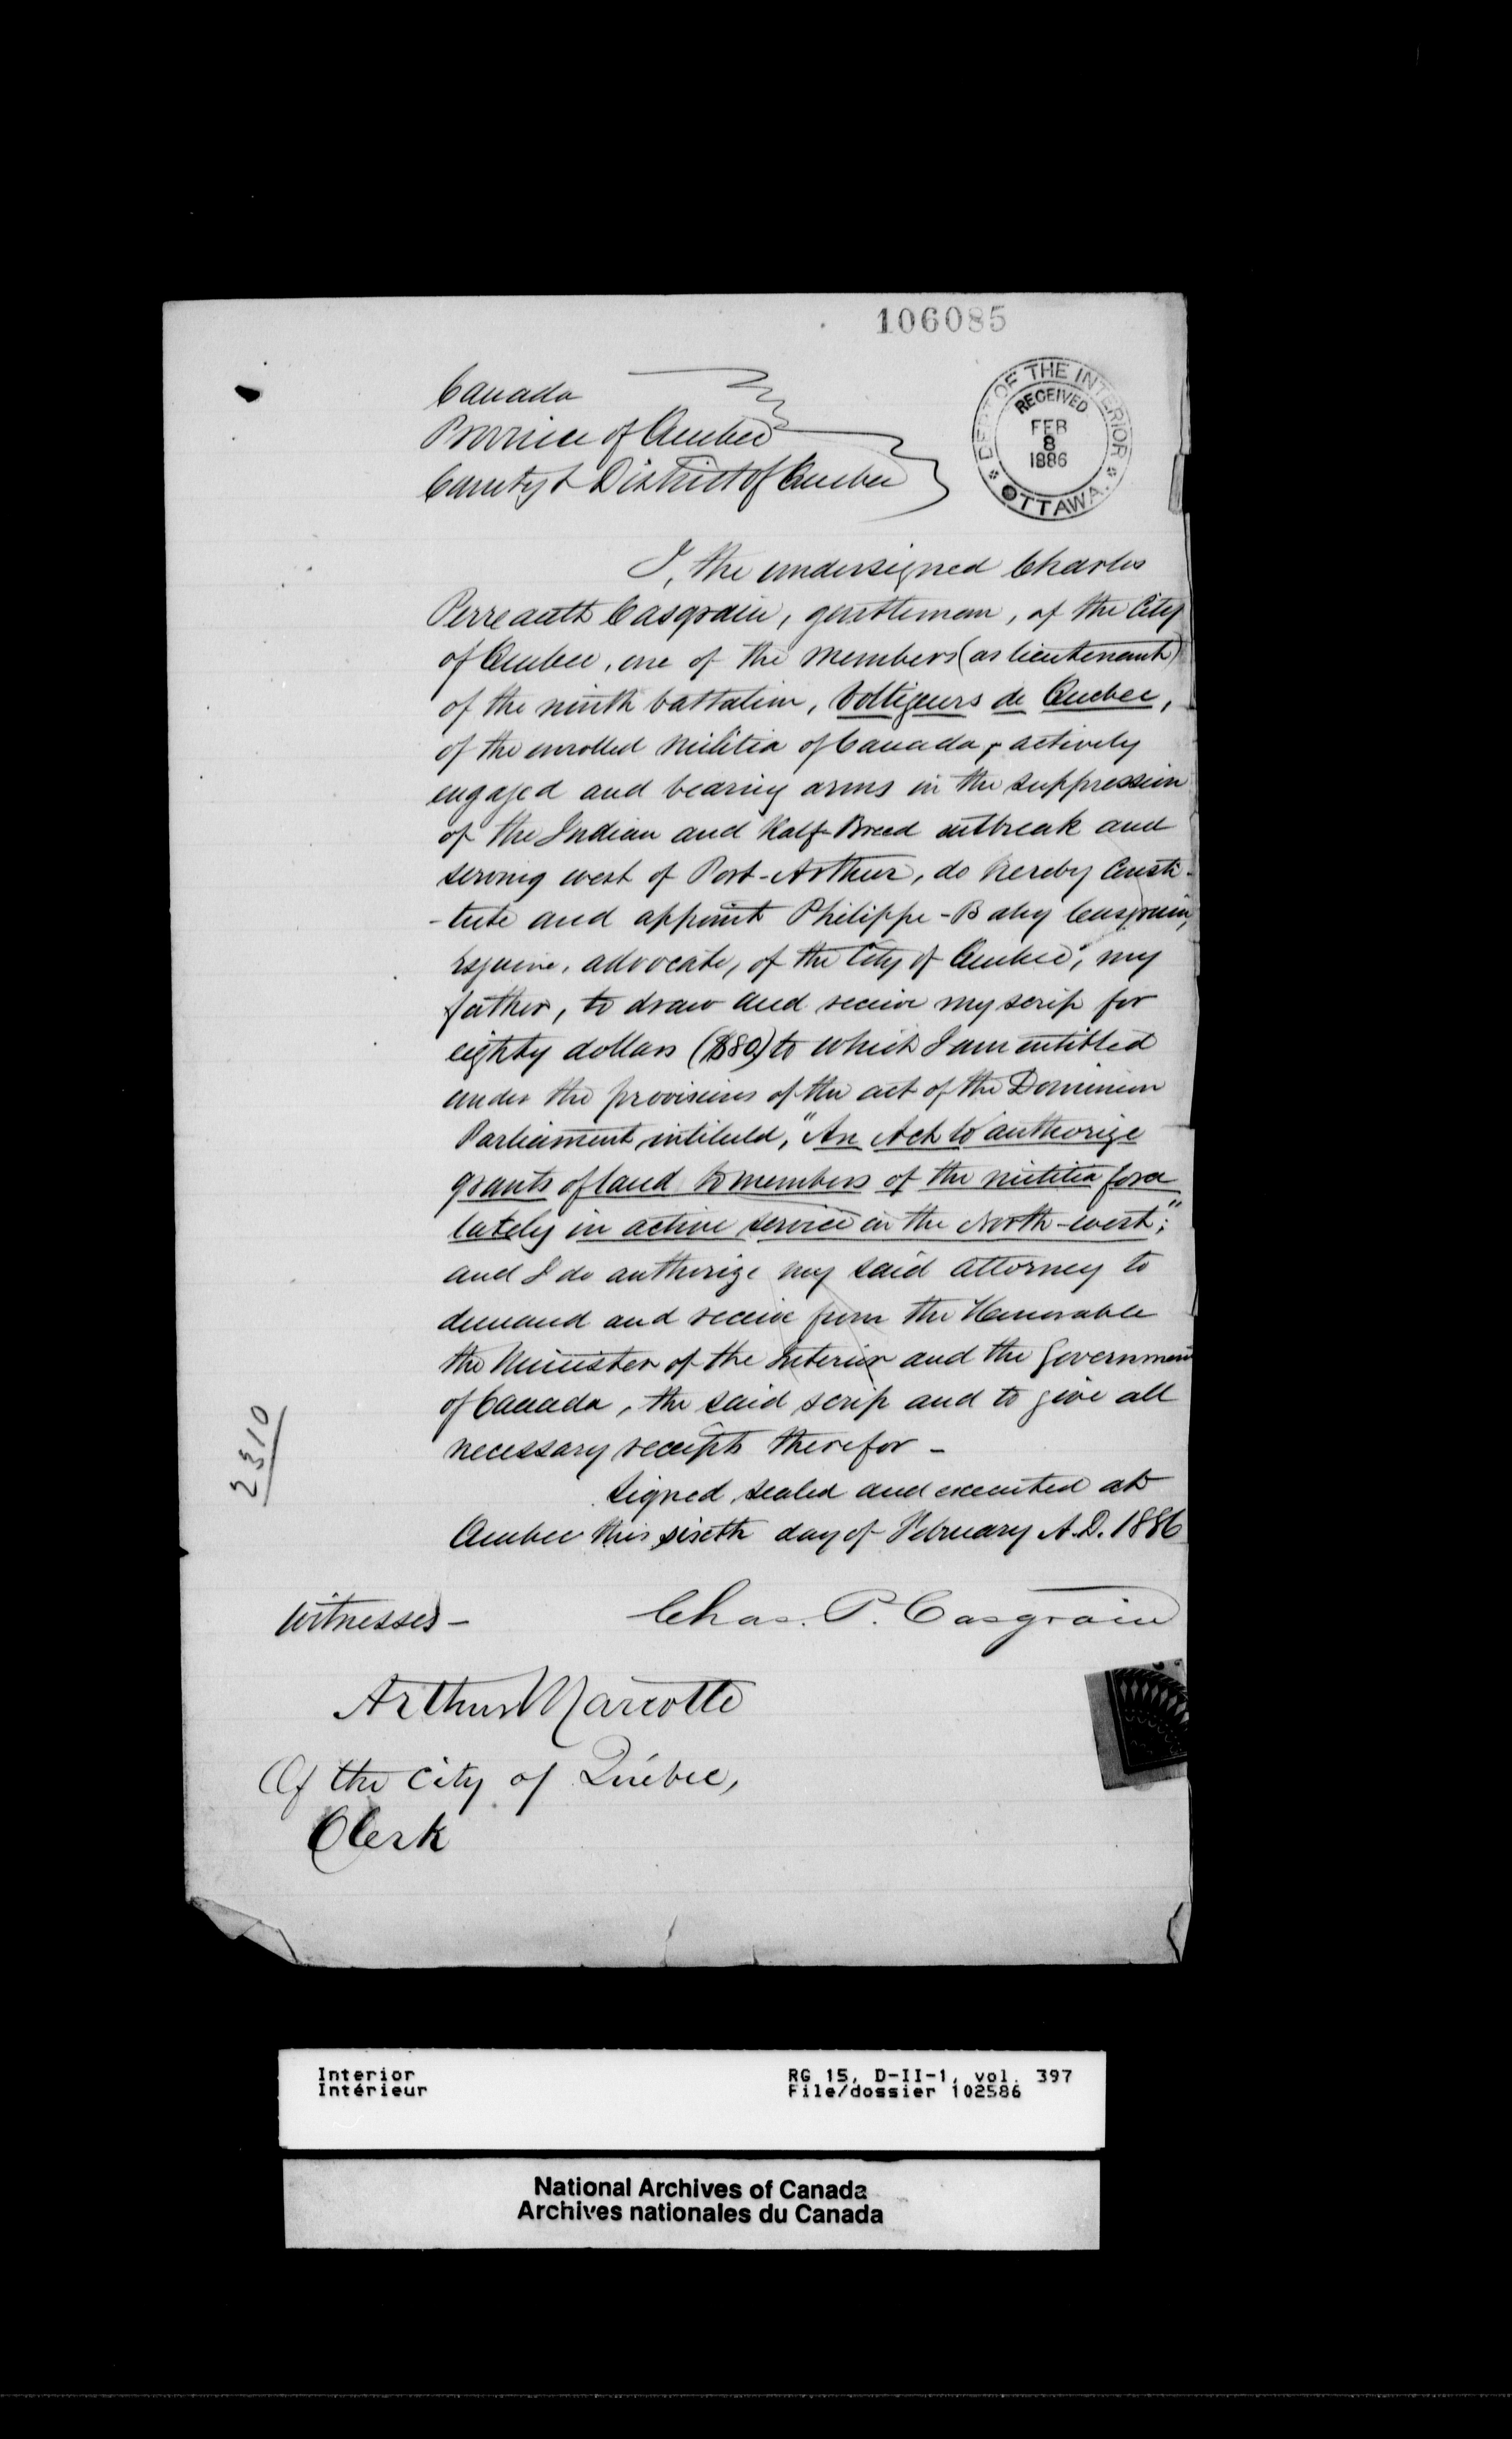 106085
DEPT OF THE INTERIOR
RECEIVED
FEB
8
1886
OTTAWA.
Canada
Province of Quebec
County & District of Quebec
I, the undersigned Charles
Perreault Casgrain, gentleman, of the City
of Quebec, one of the members (as lieutenant)
of the ninth battalion, Voltigeurs de Quebec,
of the enrolled militia of Canada, actively
engaged and bearing arms in the suppression
of the Indian and Half-Breed outbreak and
serving west of Port-Arthur, do hereby consti-
-tute and appoint Philippe-Baby Casgrain,
Esquire, advocate, of the City of Quebec, my
father, to draw and receive my scrip for
eighty dollars ($80) to which I am entitled
under the provisions of the act of the Dominion
Parliament intituled, "An Act to authorize
grants of land to members of the militia force
lately in active service in the North-west;"
and I do authorize my said attorney to
demand and receive from the Honorable
the Minister of the Interior and the Government
of Canada, the said scrip and to give all
necessary receipts therefor -
Signed, sealed and executed at
Quebec this sixth day of February A.D. 1886
2310
Witnesses -
Chas. P. Casgrain
Arthur Marcotte
Of the City of Québec,
Clerk
Interior
Intérieur
RG 15, D-II-1, vol. 397
File/dossier 102586
National Archives of Canada
Archives nationales du Canada